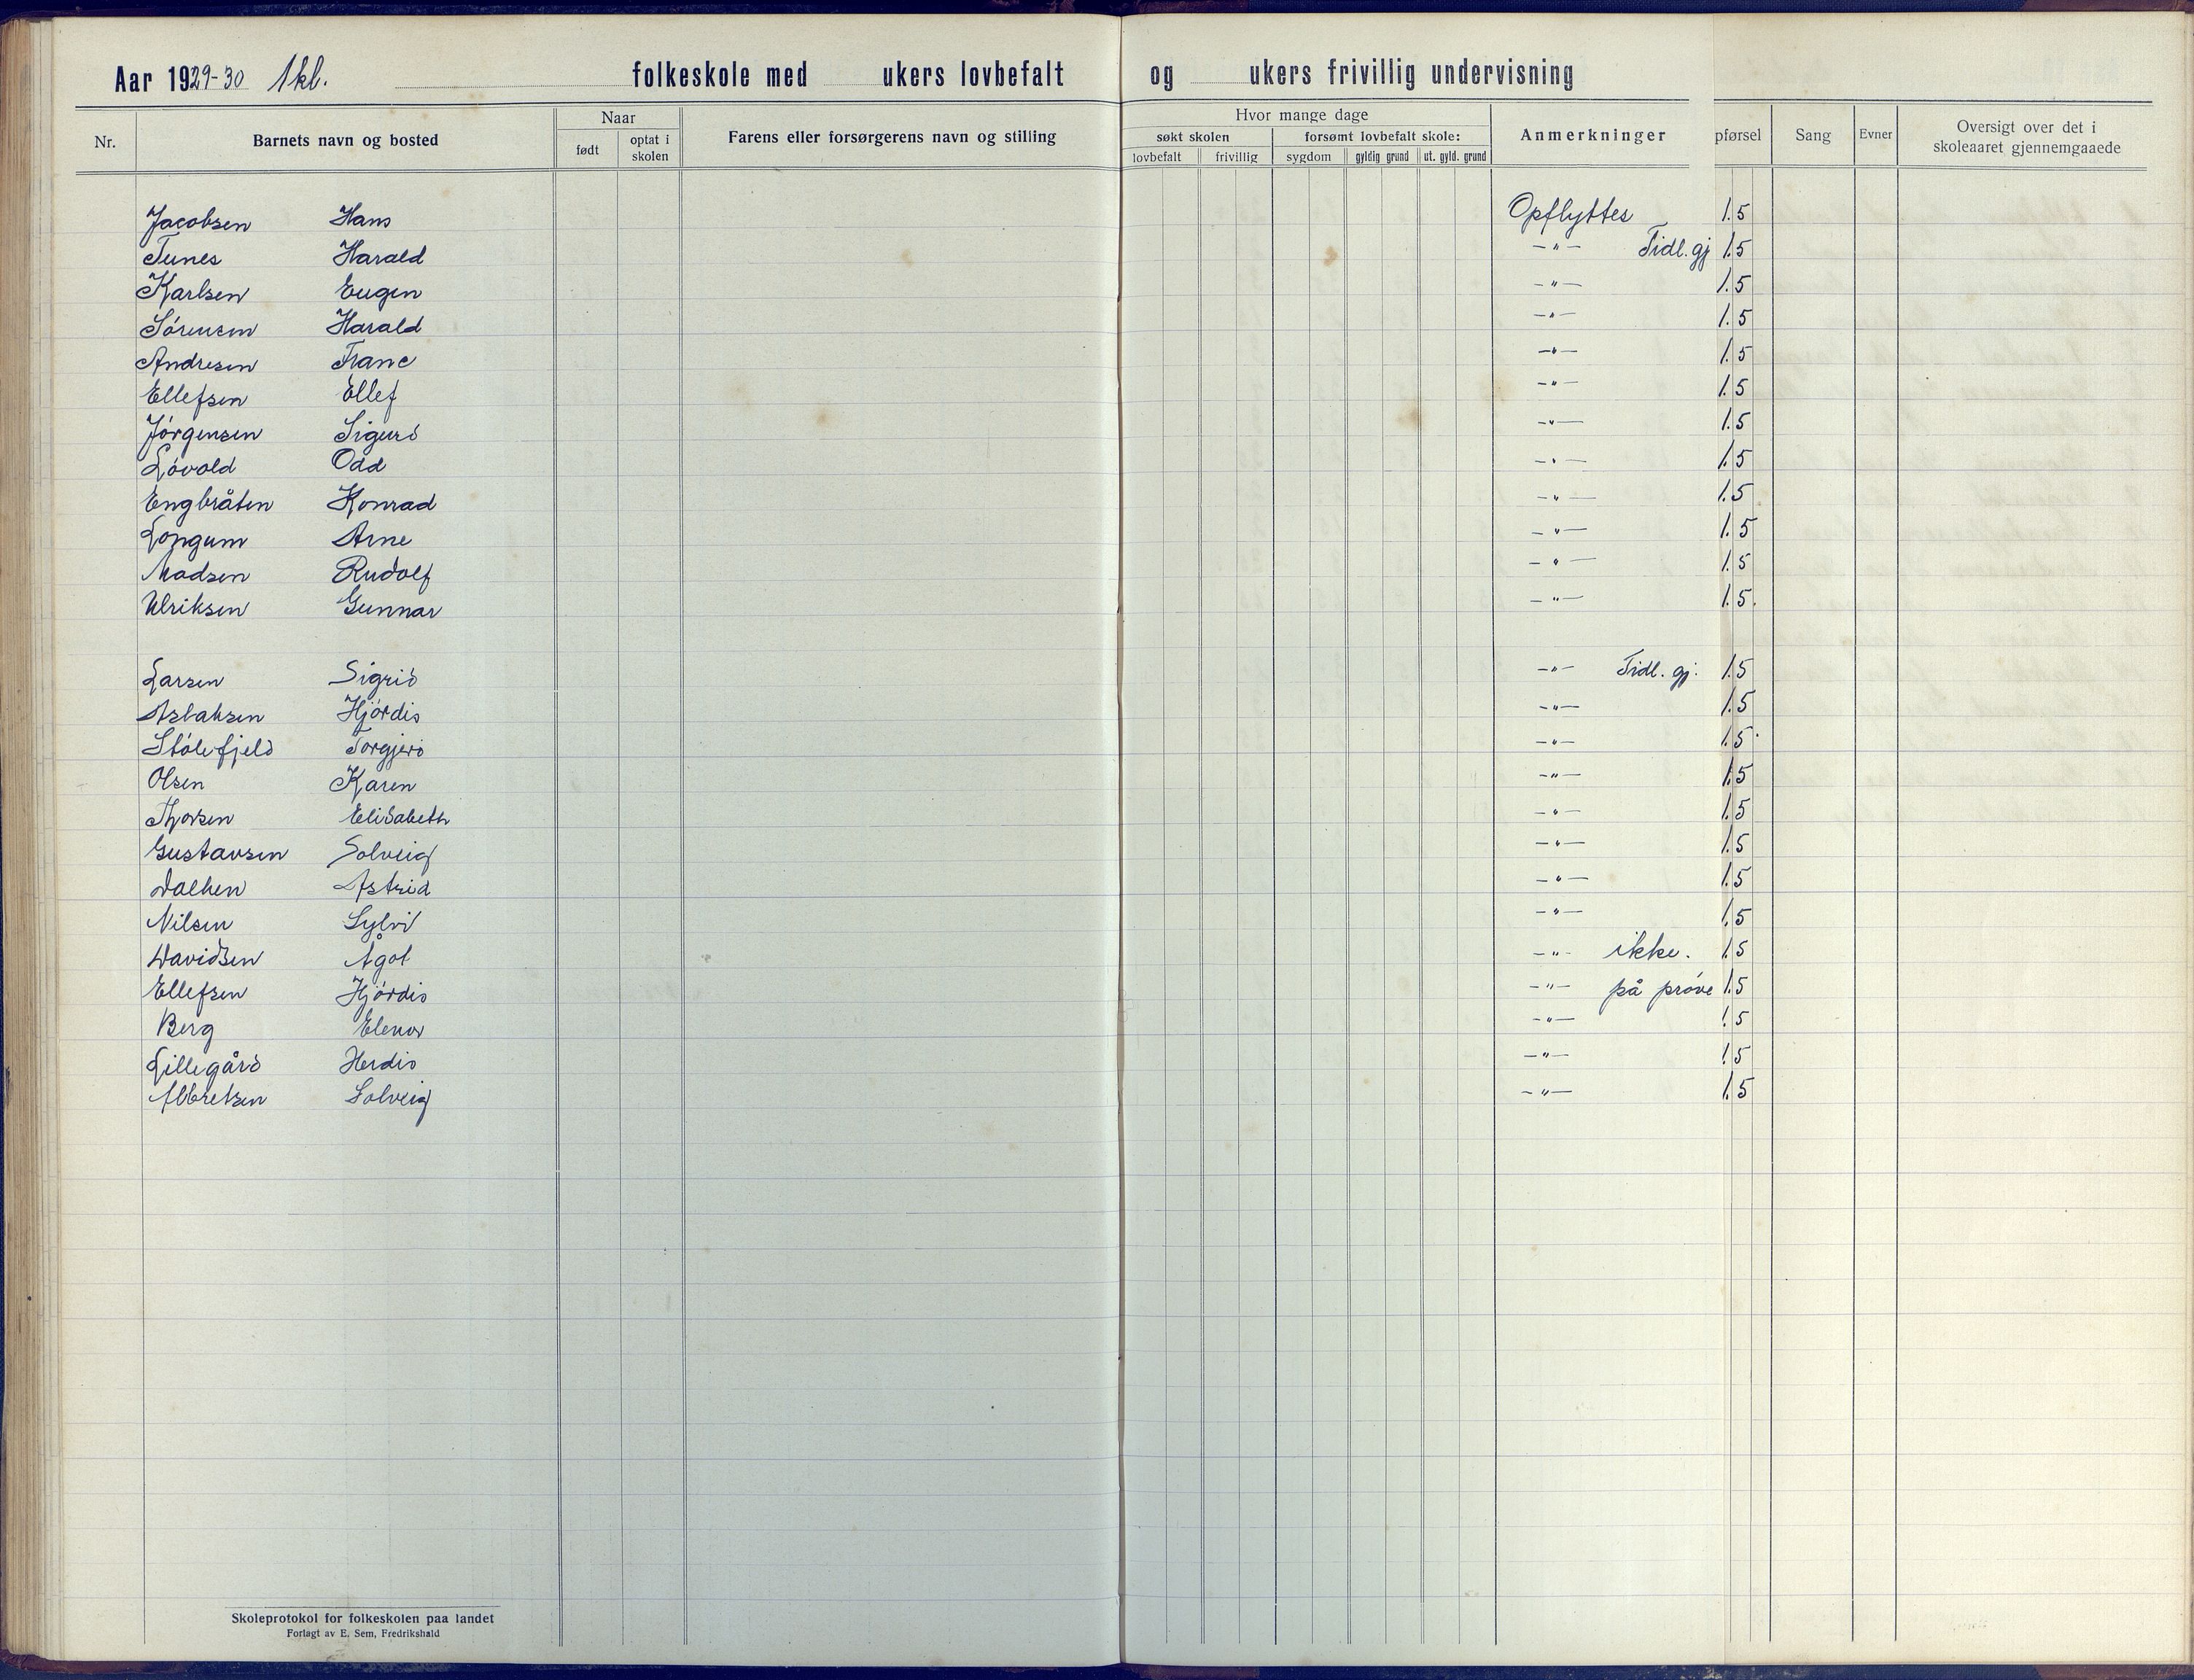 Aar 1929-30 1kl. folkeskole med ukers lovbefalt og ukers frivillig undervisning
Nr. Barnets navn og bosted Naar født optat i skolen Farens eller forsørgerens navn og stilling Hvor mange dage søkt skolen lovbefalt frivillig forsømt lovbefalt skole: sygdom gyldig grund ut. gyld. grund Anmerkninger pførsel Sang Evner Oversigt over det i skoleaaret gjennemgaaede
Jacobsen Hans Opflyttes 1.5
Tunes Harald -"- Tidl. gj 1.5
Karlsen Eugen -"- 1.5
Sörensen Harald -"- 1.5
Andresen Franc -"- 1.5
Ellefsen Ellef -"- 1.5
Jörgensen Sigurd -"- 1.5
Lövold Odd -"- 1.5
Engbråten Konrad -"- 1.5
Longum Arne -"- 1.5
Madsen Rudolf -"- 1.5
Ulriksen Gunnar -"- 1.5.
Larsen Sigrid -"- Tidl. gj. 1.5
Aslaksen Hjördis -"- 1.5
Stölefjeld Torgjerd -"- 1.5
Olsen Karen -"- 1.5
Thorsen Elisabeth -"- 1.5
Gustavsen Solveig -"- 1.5
Dalhen Astrid -"- 1.5
Nilsen Sylvi -"- 1.5
Davidsen Ågot -"- ikke. 1.5
Ellefsen Hjördis -"- på pröve 1.5
Berg Elenor -"- 1.5
Lillegård Herdis -"- 1.5
Albretsen Solveig -"- 1.5
Skoleprotokol for folkeskolen paa landet
Forlagt av E. Sem, Fredrikshald